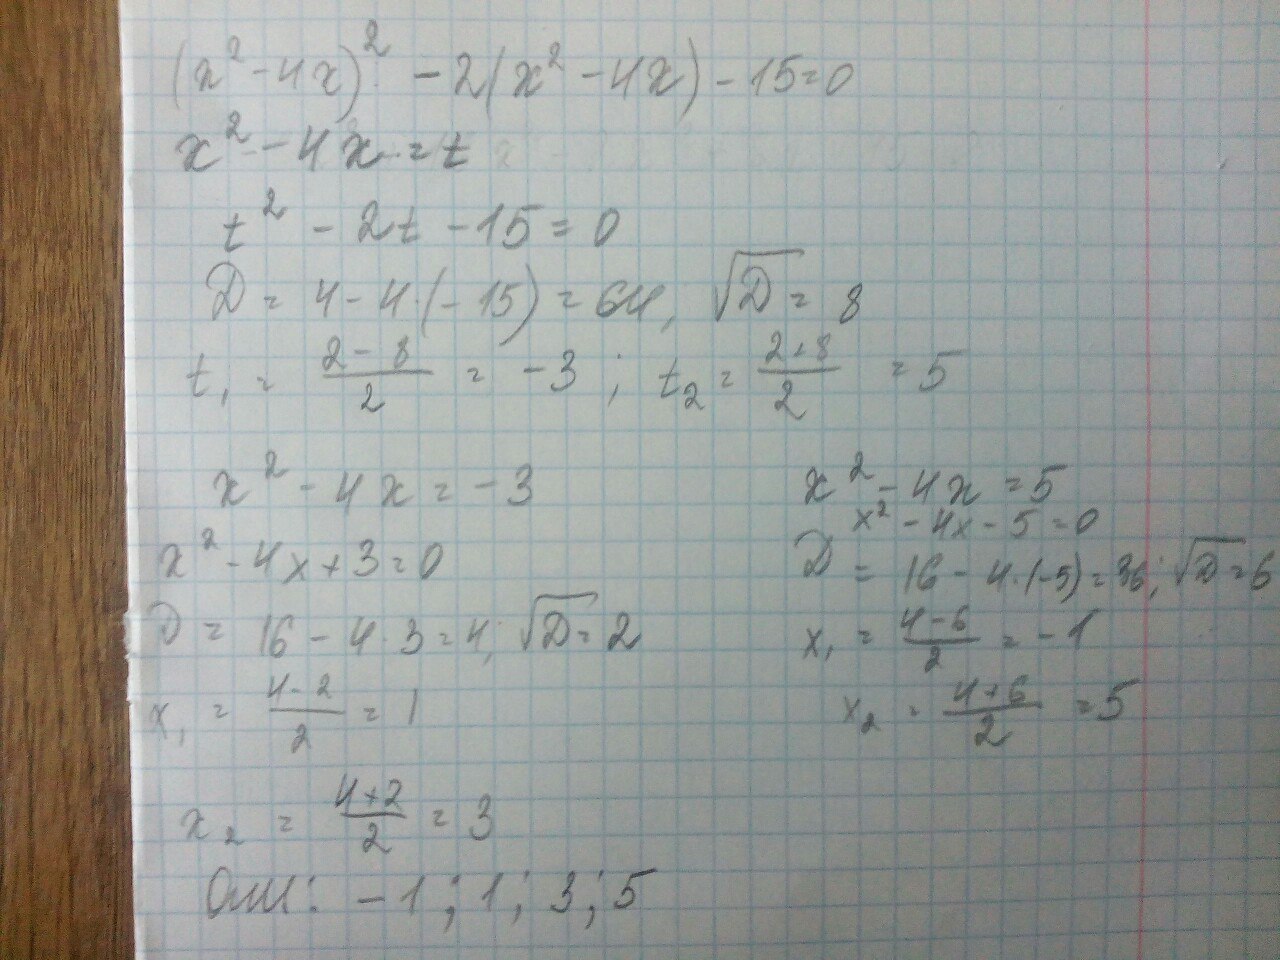 (x² - 4x)² - 2(x² - 4x) - 15 = 0
x² - 4x = t
t² - 2t - 15 = 0
D = 4 - 4·(-15) = 64, √D = 8
t₁ = (2 - 8)/2 = -3 ; t₂ = (2 + 8)/2 = 5
x² - 4x = -3
x² - 4x + 3 = 0
D = 16 - 4·3 = 4, √D = 2
x₁ = (4 - 2)/2 = 1
x₂ = (4 + 2)/2 = 3
x² - 4x = 5
x² - 4x - 5 = 0
D = 16 - 4·(-5) = 36, √D = 6
x₁ = (4 - 6)/2 = -1
x₂ = (4 + 6)/2 = 5
Отв: -1 ; 1 ; 3 ; 5